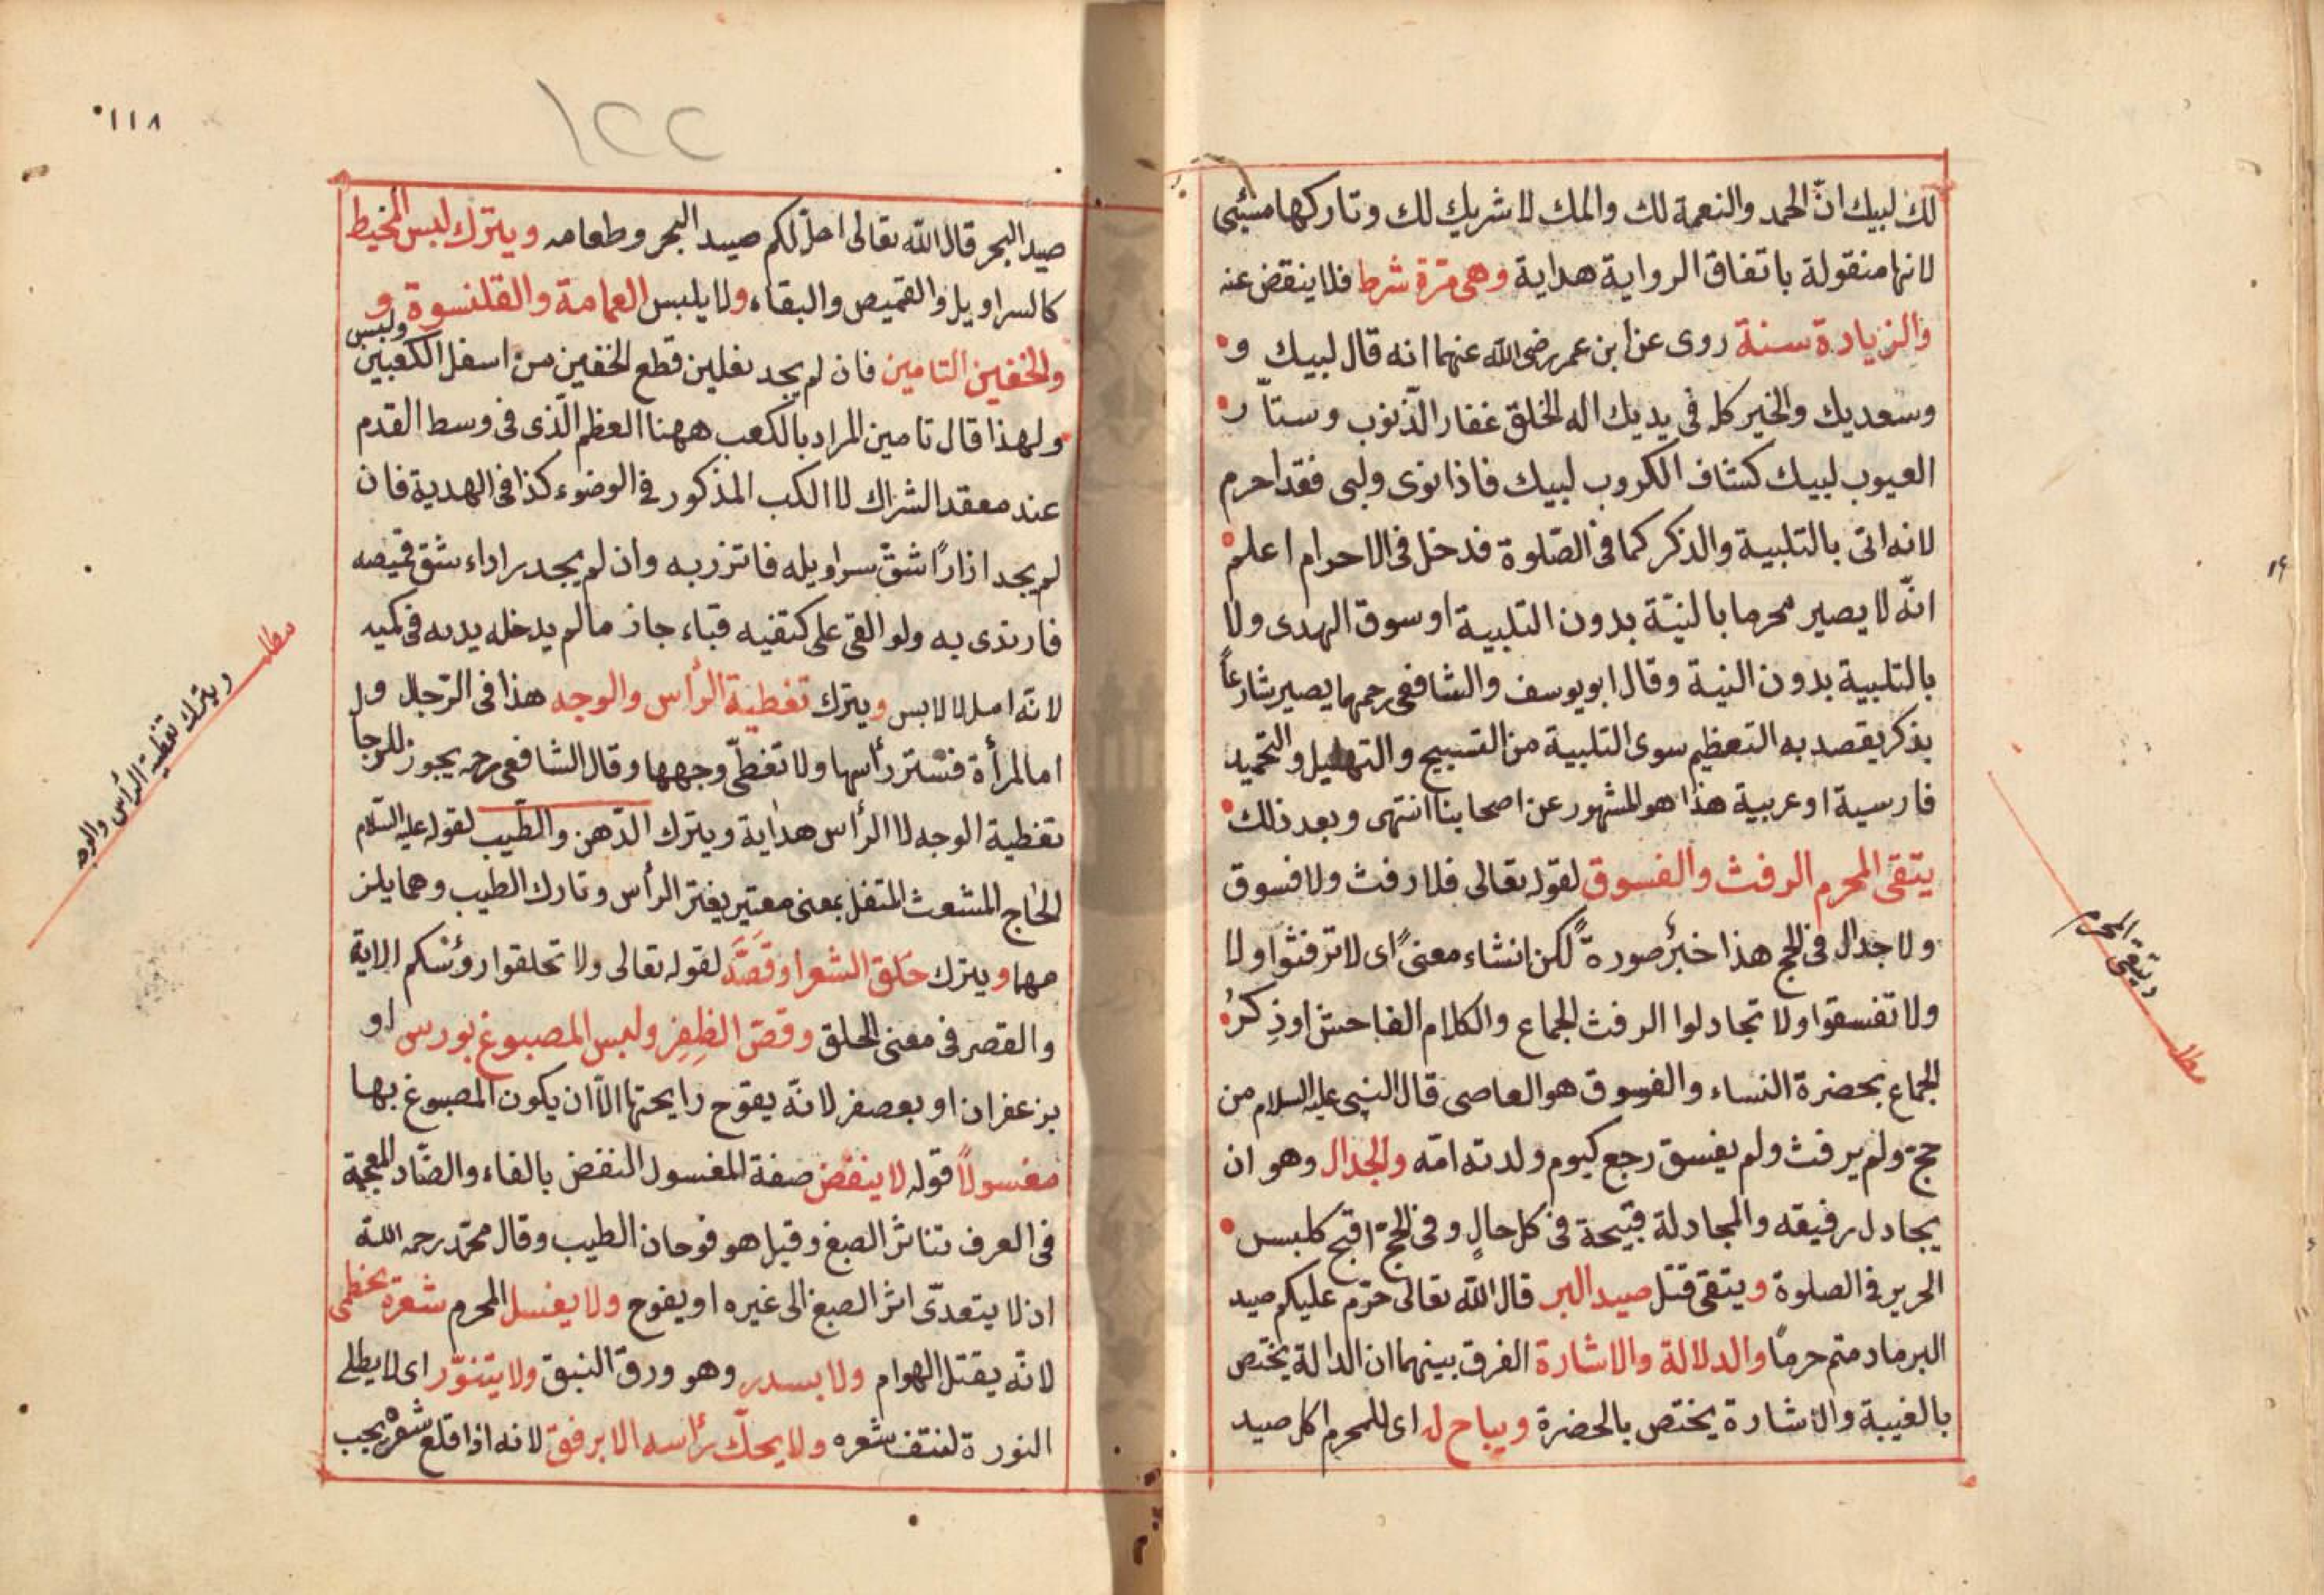 لك لبيك انّ الحمد والنعمة لك والملك لا شريك لك وتاركها مسئى
لانها منقولة باتفاق الرواية هداية وهى مرّة شرط فلا ينقض عنه
والزيادة سنة روى عن ابن عمر رضى الله عنهما انه قال لبيك و
وسعديك والخير كله فى يديك اله الخلق غفار الذّنوب وستاّر
العيوب لبيك كشاف الكروب لبيك فاذا نوى ولبى فقد احرم
لانه اتى بالتلبية والذكر كما فى الصّلوة فدخل فى الاحرام اعلم
انّه لا يصير محرما بالنيّة بدون التلبية او سوق الهدى ولا
بالتلبية بدون النية وقال ابو يوسف والشافعى رحمهما يصير شارعاً
بذكر يقصد به التعظيم سوى التلبية من التسبيح والتهليل والتحميد
فارسية او عربية هذا هو المشهور عن اصحابنا انتهى وبعد ذلك
يتقى المحرم الرفث والفسوق لقوله تعالى فلا رفث ولا فسوق
ولا جدال فى الحج هذا خبرٌ صورةً لكن انشاء معنىً اى لا ترفثوا ولا
ولا تفسقوا ولا تجادلوا الرفث الجماع والكلام الفاحش او ذِكرُ
الجماع بحضرة النساء والفسوق هو العاصى قال النبى عليه السلام من
حجّ ولم يرفث ولم يفسق رجع كيوم ولدته امّه والجدال وهو ان
يجادل رفيقه والمجادلة قبيحة فى كل حالٍ وفى الحجّ اقبح كلبس
الحرير فى الصلوة ويتقى قتل صيد البر قال الله تعالى حرّم عليكم صيد
البر مادمتم حرماً والدلالة والاشارة الفرق بينهما ان الدالة يختص
بالغيبة والاشارة يختص بالحضرة ويباح له اى للمحرم اكل صيد
ويتقى المحرم
مطلب
١٢٢
١١٨
صيد البحر قال الله تعالى احلّ لكم صيد البحر وطعامه ويترك لبس المخيط
كالسراويل والقميص والبقاء ولا يلبس العمامة والقلنسوة و
والخفين التامين فان لم يجد نعلين قطع الخفين من اسفل الكعبين ولبس
ولهذا قال تامين المراد بالكعب ههنا العظم الّذى فى وسط القدم
عند معقد الشراك لا الكب المذكور فى الوضوء كذا فى الهدية فان
لم يجد ازاراً شقّ سراويله فاتزر به وان لم يجد رداء شق قميصه
فارتدى به ولو القى على كتفيه قباء جاز مالم يدخله يديه فى كميه
لانّه امل لا لابس ويترك تغطية الرأس والوجه هذا فى الرّجال ول
اما المرأة فتستر رأسها ولا تغطّى وجهها وقال الشافعى رحمه يجوز للرجا
تغطية الوجه لا الرأس هداية ويترك الدّهن والطّيب لقوله عليه السّلام
الحاج المشعث المتفل بمعنى معتير يغتر الرأس وتارك الطيب وهما يلز
مهما ويترك حَلق الشعر او قَصَّه لقوله تعالى ولا تحلقوا رؤسكم الاية
والقصر فى معنى الحلق وقصّ الظِفِر ولبس المصبوغ بورس او
بزعفران او بعصفر لانّه يفوّح رايحتها الّا ان يكون المصبوغ بها
مغسولاً قوله لا ينفض صفة المغسول النفض بالفاء والضّاد المعجمة
فى العرف تناثر الصبغ وقيل هو فوحان الطيب وقال محمّد رحمه الله
اذ لا يتعدّى اثر الصبغ الى غيره او يفوح ولا يغسل المحرم شعره بخطمى
لانّه يقتل الهوام ولا بسدر وهو ورق النبق ولا يتنوّر اى لا يطلى
النورة لنتف شعره ولا يحكّ رأسه الا برفق لانه اذا قلع شعره يجب
مطلب
ويترك تغطية الرأس والوجه